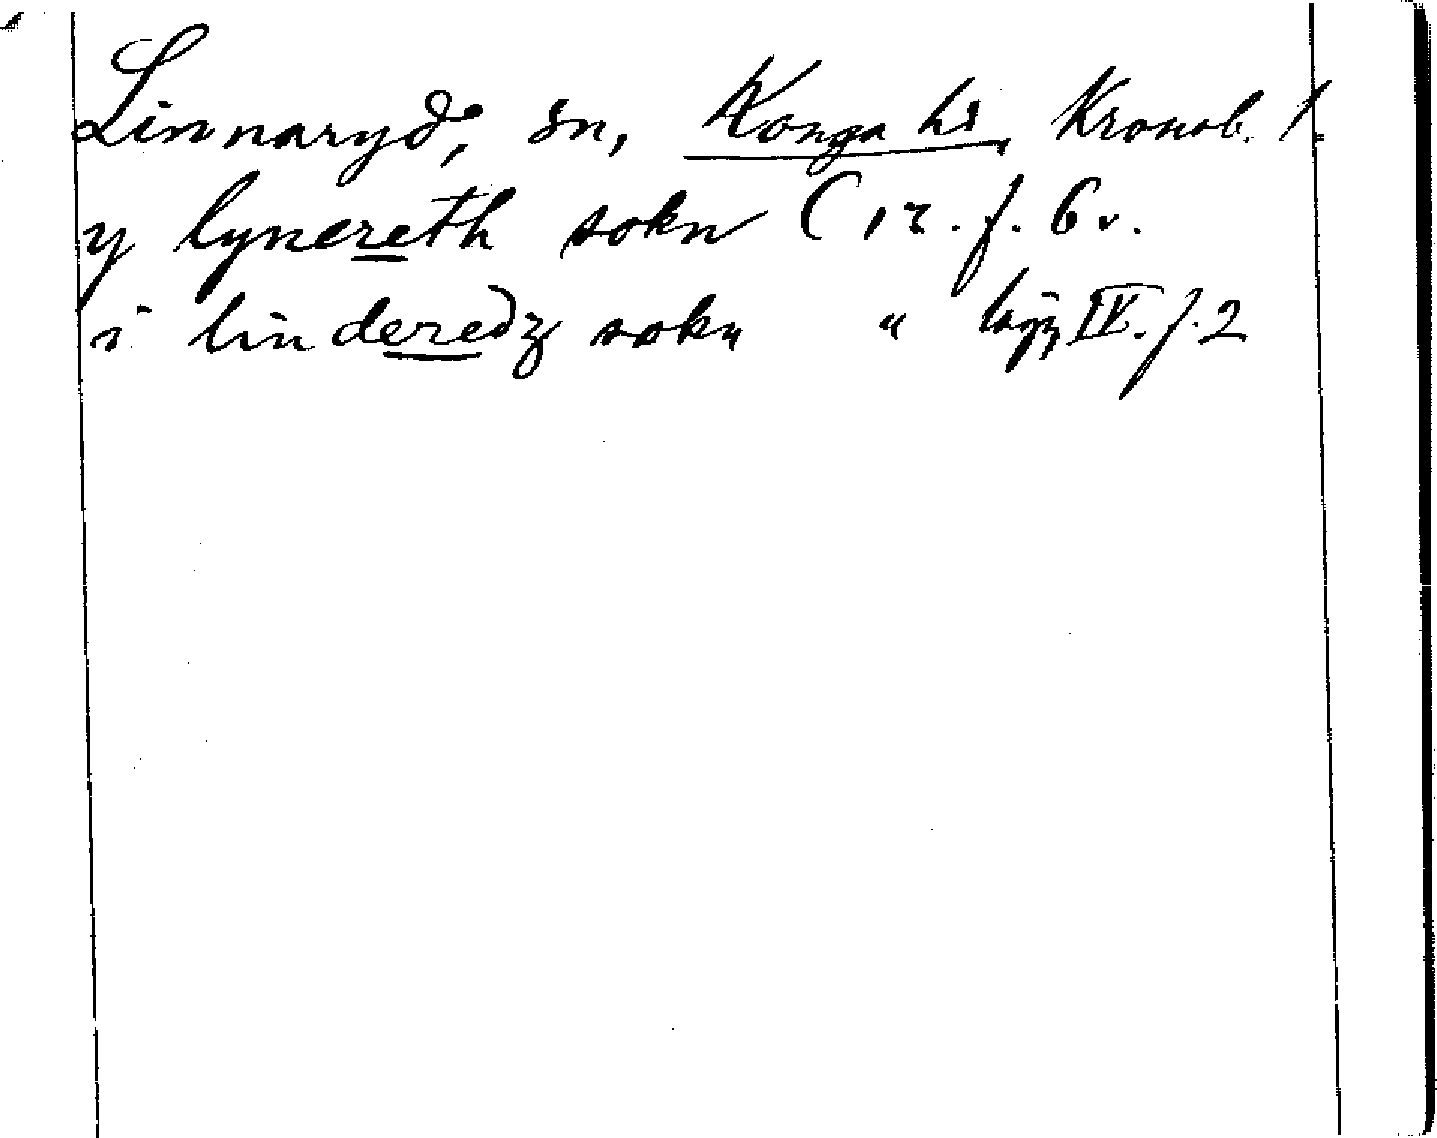 Linnaryd, sn, Konga hd, Kronob. l.
y lynereth sokn ( 12. f. 6 v.
i linderedz sokn " lägg IV. f. 2